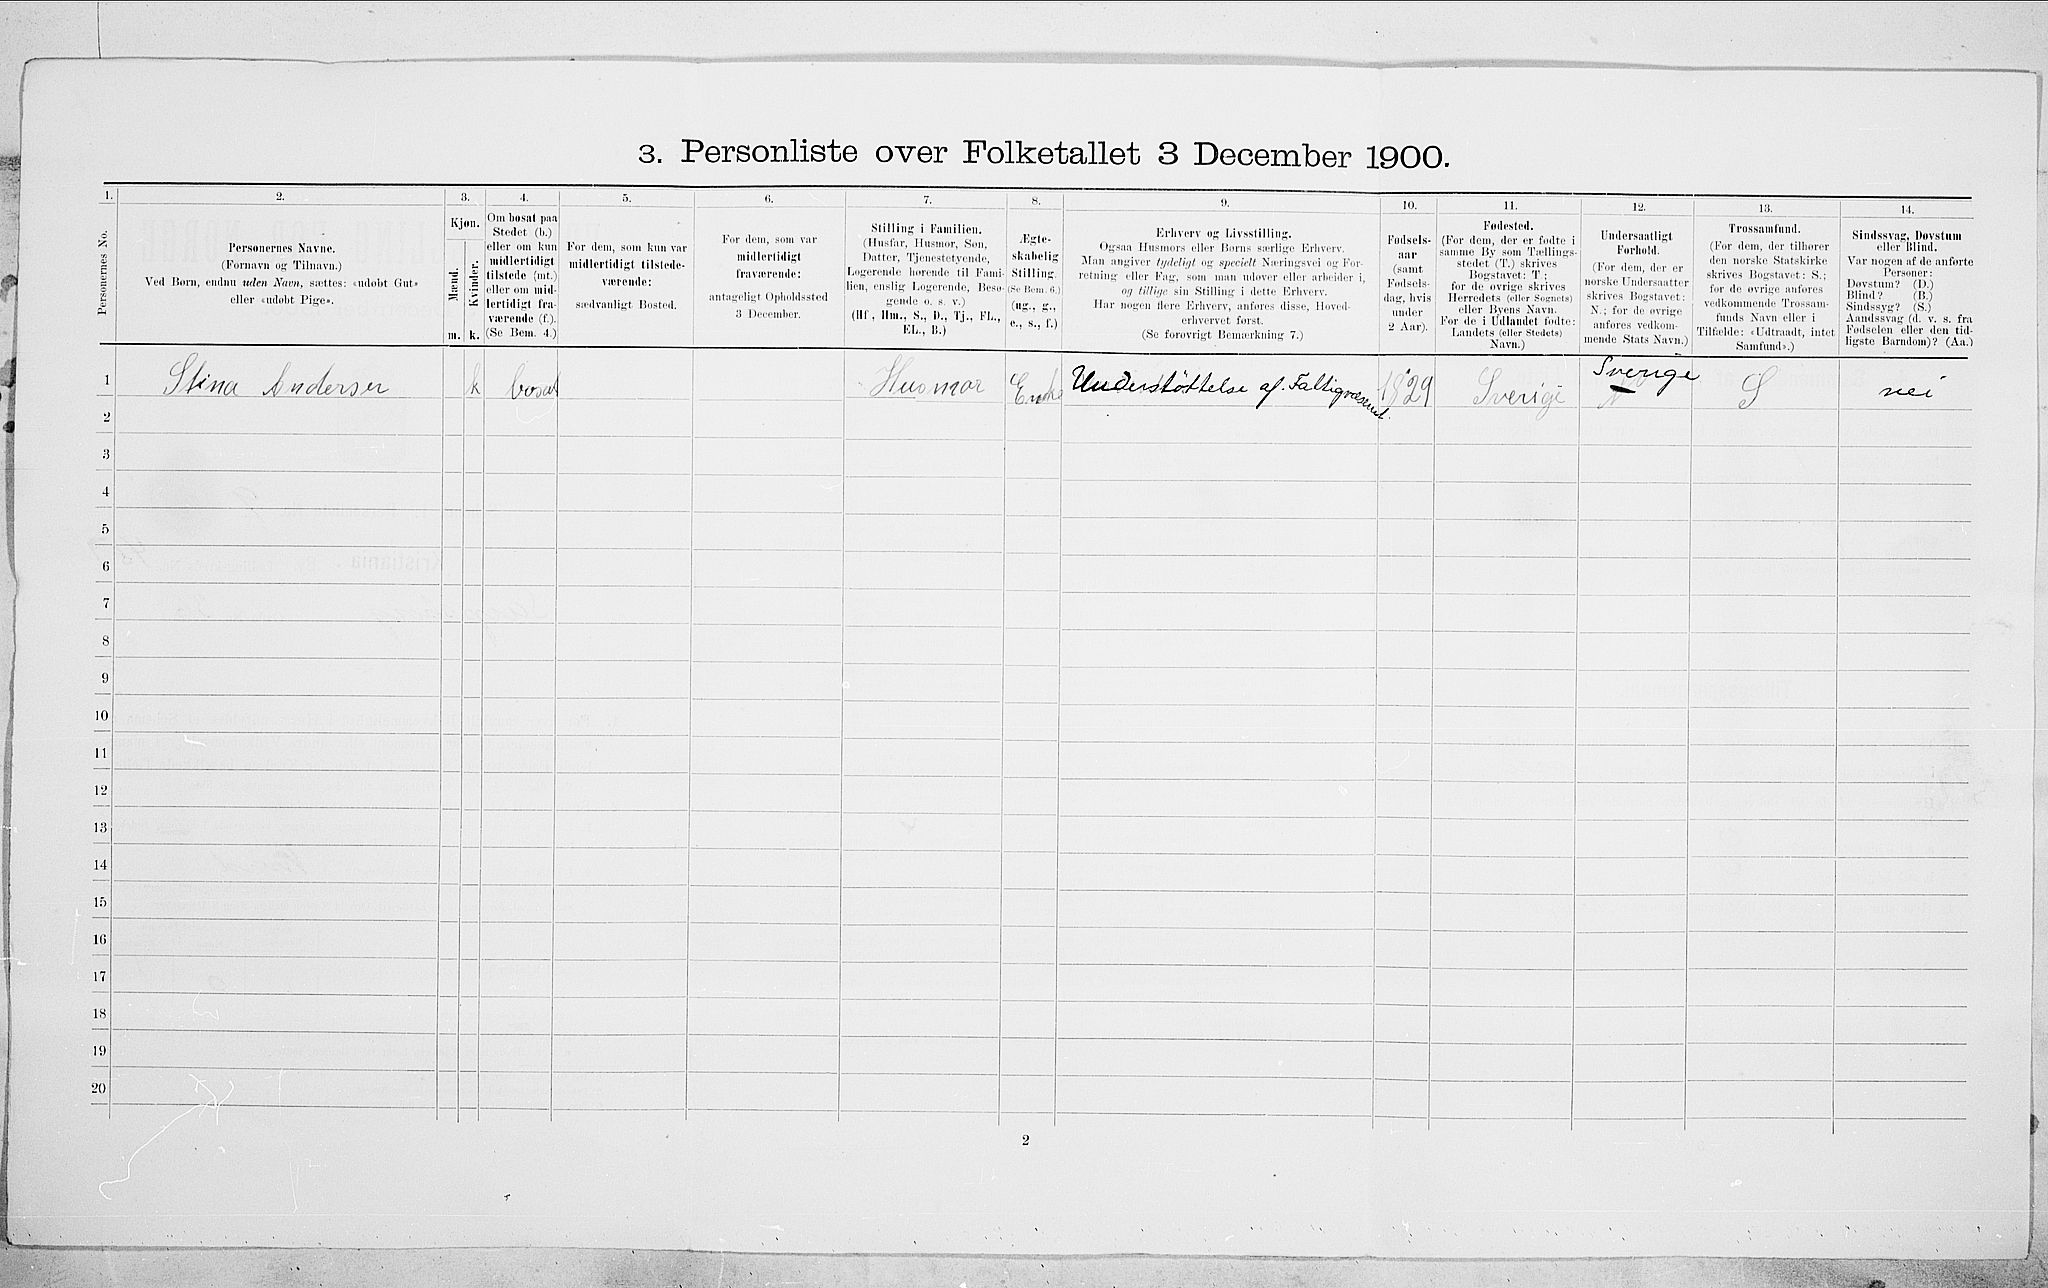 3. Personliste over Folketallet 3 December 1900.
1.
2.
3.
4.
5.
6.
7.
8.
9.
10.
11.
12.
13.
14.
Personernes No.
Personernes Navne.
(Fornavn og Tilnavn.)
Ved Børn, endnu uden Navn, sættes: «udøbt Gut»
eller «udøbt Pige».
Kjøn.
Mænd.
Kvinder.
m.
k.
Om bosat paa
Stedet (b.)
eller om kun
midlertidigt
tilstede (mt.)
eller om mid-
lertidigt fra-
værende (f.).
(Se Bem. 4.)
For dem, som kun var
midlertidigt tilstede-
værende:
sædvanligt Bosted.
For dem, som var
midlertidigt
fraværende:
antageligt Opholdssted
3 December.
Stilling i Familien.
(Husfar, Husmor, Søn,
Datter, Tjenestetyende,
Logerende hørende til Fami-
lien, enslig Logerende, Besø-
gende o. s. v.)
(Hf., Hm., S., D., Tj., FL.,
EL., B.)
Ægte-
skabelig
Stilling.
(Se Bem. 6.)
(ug., g.,
e., s., f.)
Erhverv og Livsstilling.
Ogsaa Husmors eller Børns særlige Erhverv.
Man angiver tydeligt og specielt Næringsvei og For-
retning eller Fag, som man udøver eller arbeider i,
og tillige sin Stilling i dette Erhverv.
Har nogen flere Erhverv, anføres disse, Hoved-
erhvervet først.
(Se forøvrigt Bemærkning 7.)
Fødsels-
aar
(samt
Fødsels-
dag, hvis
under
2 Aar).
Fødested.
(For dem, der er fødte i
samme By som Tællings-
stedet (T.) skrives
Bogstavet: T.;
for de øvrige skrives
Herredets (eller Sognets)
eller Byens Navn.
For de i Udlandet fødte:
Landets (eller Stedets)
Navn.)
Undersaatligt
Forhold.
(For dem, der er
norske Undersaatter
skrives Bogstavet:
N.; for de øvrige
anføres vedkom-
mende Stats Navn.)
Trossamfund.
(For dem, der tilhører
den norske Statskirke
skrives Bogstavet: S.;
for de øvrige anføres
vedkommende Trossam-
funds Navn eller i
Tilfælde: «Udtraadt, intet
Samfund».)
Sindssvag, Døvstum
eller Blind.
Var nogen af de anførte
Personer:
Døvstum? (D.)
Blind? (B.)
Sindssyg? (S.)
Aandssvag (d. v. s. fra
Fødselen eller den tid-
ligste Barndom)? (Aa.)
1 Stina Andersen k bosat Husmor Enke Understøttelse af Fattigvæsenet. 1829 Sverige Sverige N S nei
2
3
4
5
6
7
8
9
10
11
12
13
14
15
16
17
18
19
20
2